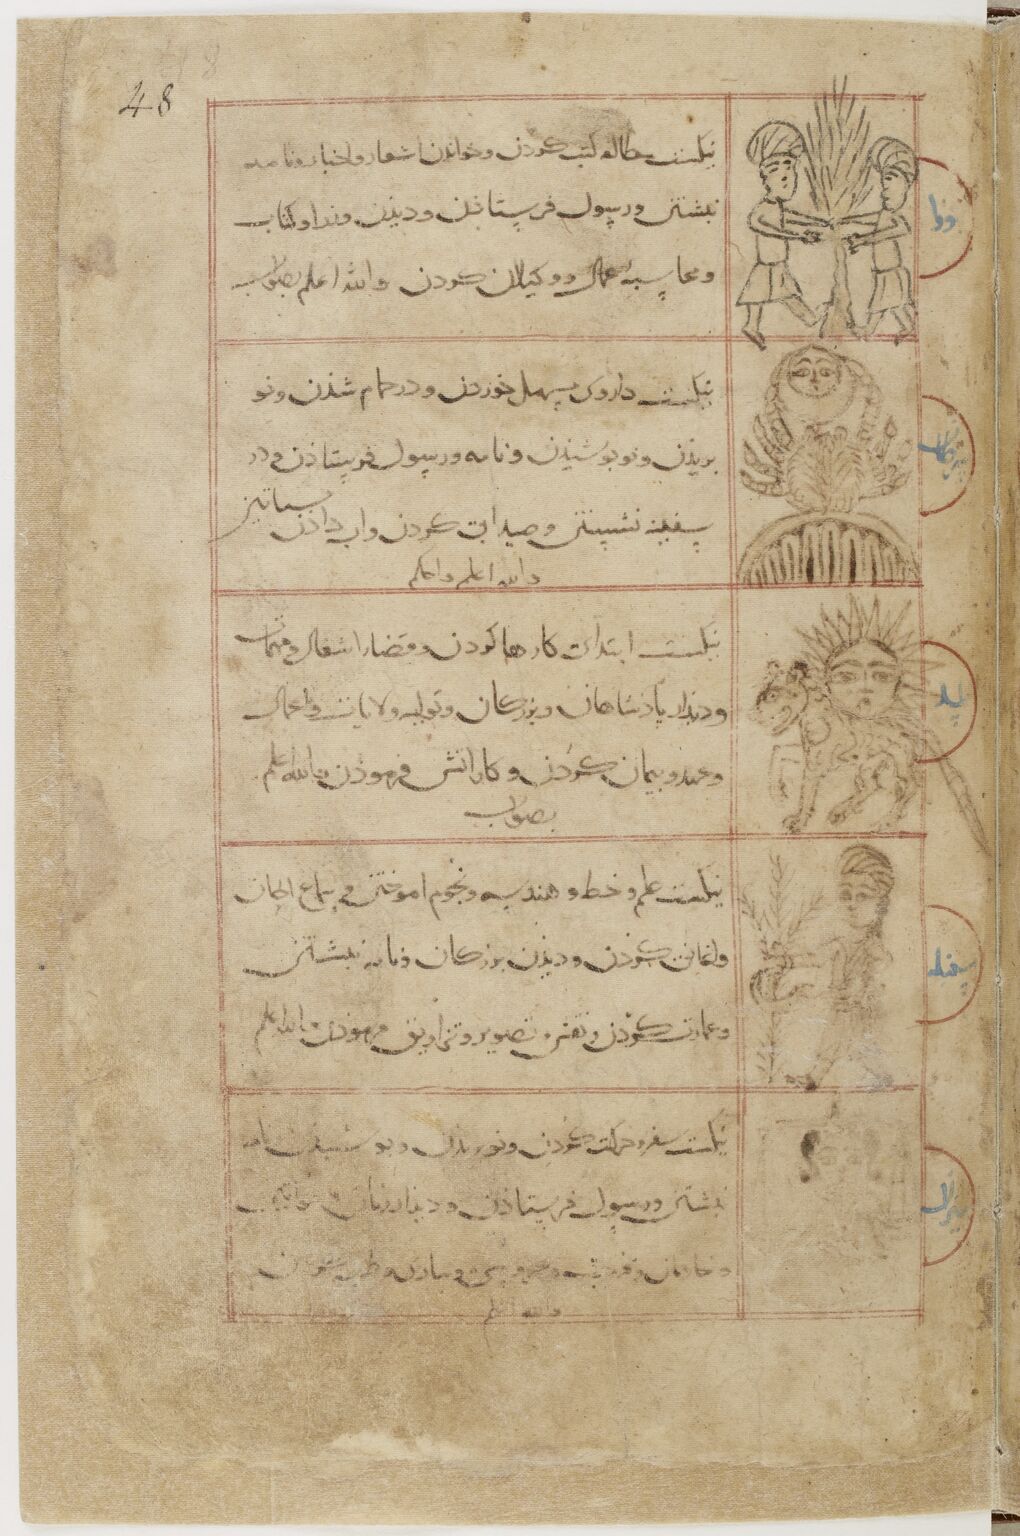 48
نیکست مطالعه کتب کردن و خواندن اشعار و اخبار و نامه
نبشتن و رسول فرستاذن و دیذن
و محاسبه عمال و وکیلان کردن والله اعلم بصواب
جوزا
نیکست داروی مسهل خوردن و در حمام شذن و نو
بریذن و نو پوشیذن و نامه و رسول فرستاذن و در
سفینه نشستن و صید آبی کردن و آب دادن بساتین
والله اعلم واحکم
سرطان
نیکست ابتدای کارها کردن و قضاء اشغال و مهمات
و دیذار پاذشاهان و بزرکان و تولیه ولایات و اعمال
و عهد و پیمان کردن و کار آتش فرموذن والله اعلم
بصواب
اسد
نیکست علم و خط و هندسه و نجوم آموختن و سماع الحان
کردن و دیذن بزرکان و نامه نبشتن
و عمارت کردن و نقش و تصویر و تزاویق فرموذن والله اعلم
سنبله
نیکست سفر و حرکت کردن و نو بریذن و پوشیذن نامه
نبشتن و رسول فرستاذن و دیذار زنان
میزان
والله اعلم